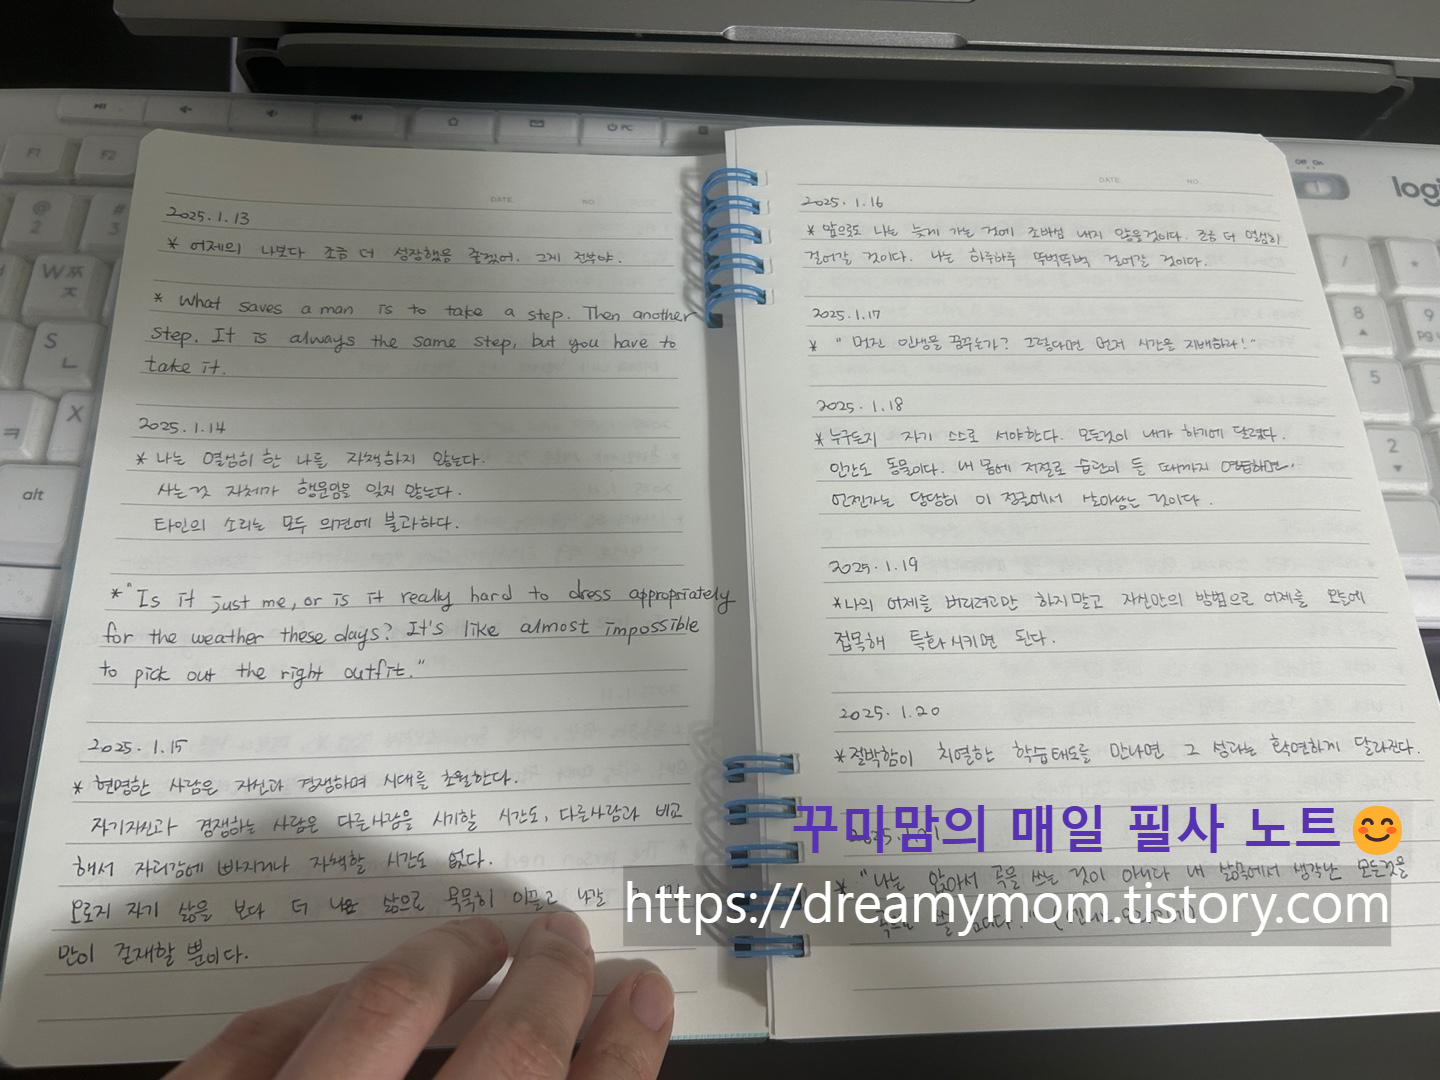 DATE. NO.
2025.1.13
* 어제의 나보다 조금 더 성장했음 좋겠어. 그게 전부야.
* What saves a man is to take a step. Then another
step. It is always the same step, but you have to
take it.
2025.1.14
* 나는 열심히 한 나를 자책하지 않는다.
사는 것 자체가 행운임을 잊지 않는다.
타인의 소리는 모두 의견에 불과하다.
*"Is it just me, or is it really hard to dress appropriately
for the weather these days? It's like almost impossible
to pick out the right outfit."
2025. 1.15
* 현명한 사람은 자신과 경쟁하며 시대를 초월한다.
자기자신과 경쟁하는 사람은 다른사람을 시기할 시간도, 다른사람과 비교
해서 자괴감에 빠지거나 자책할 시간도 없다.
오로지 자기 삶을 보다 더 나은 삶으로 묵묵히 이끌고 나갈
만이 존재할 뿐이다.
DATE. NO.
2025. 1.16
* 앞으로도 나는 늦게 가는 것에 조바심 내지 않을것이다. 조금 더 열심히
걸어갈 것이다. 나는 하루하루 뚜벅뚜벅 걸어갈 것이다.
2025. 1.17
* " 멋진 인생을 꿈꾸는가? 그렇다면 먼저 시간을 지배하라!"
2025. 1.18
* 누구든지 자기 스스로 서야한다. 모든것이 내가 하기에 달렸다.
인간도 동물이다. 내 몸에 저절로 습관이 들 때까지 연습하면,
언젠가는 당당히 이 정글에서 살아남는 것이다.
2025. 1.19
*나의 어제를 버리려고만 하지말고 자신만의 방법으로 어제를 오늘에
접목해 특화시키면 된다.
2025. 1.20
*절박함이 치열한 학습태도를 만나면 그 성과는 확연하게 달라진다.
꾸미맘의 매일 필사 노트😊
2025. 1.21
* "나는 앉아서 곡을 쓰는 것이 아니다 내 삶속에서 생각난 모든것을
https://dreamymom.tistory.com
F1
F2
@
2
#
3
W ㅉ
ㅈ
S
ㄴ
X
ㅋ
alt
PC
Off On
logi
/
*
8
9
5
2